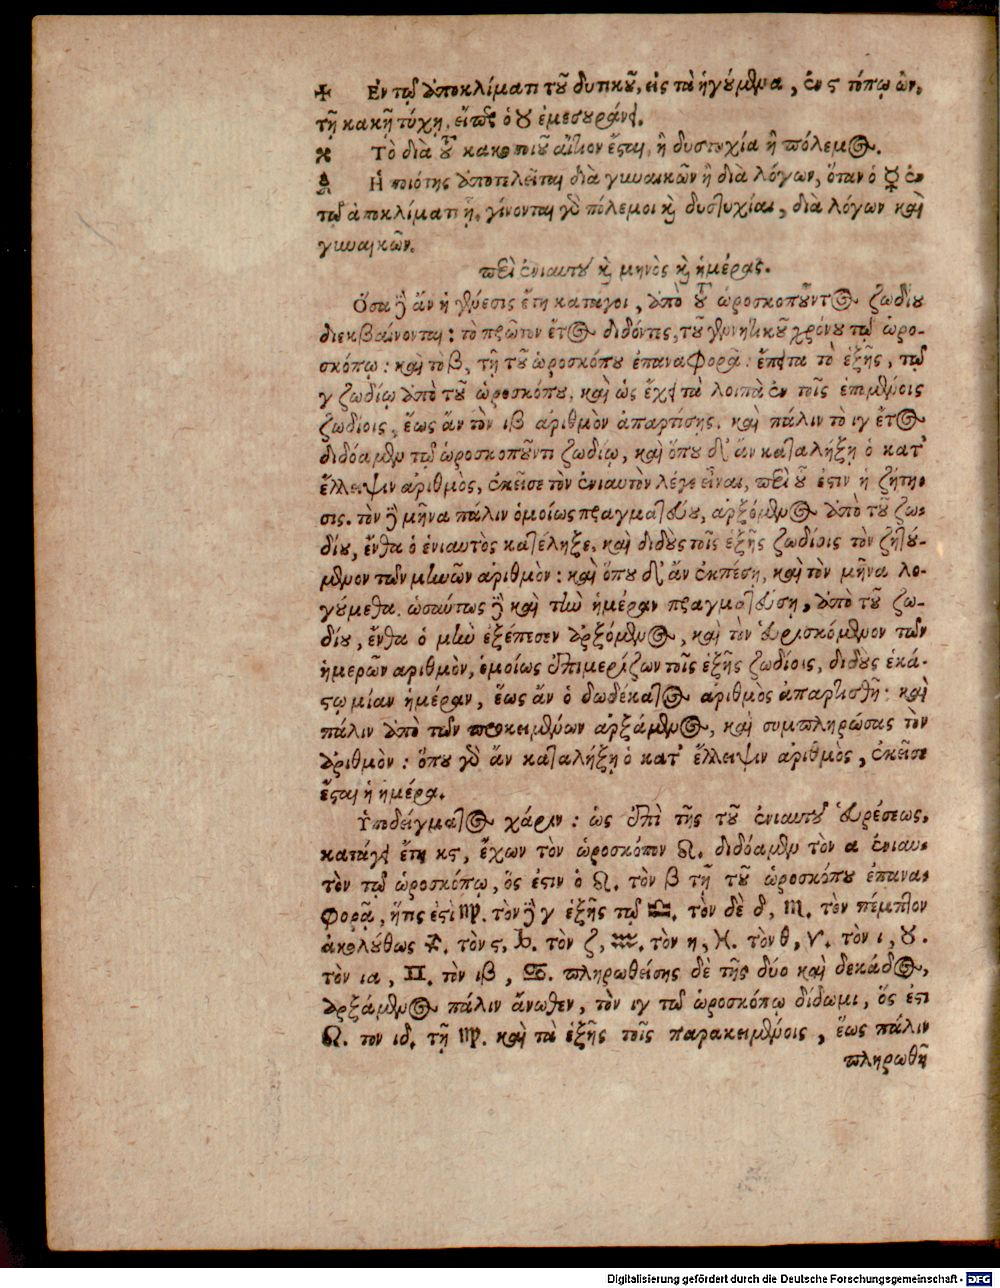 ✠ Ἐν τῷ ἀποκλίματι τοῦ δυτικοῦ, εἰς τὰ ἡγούμενα, ἐν ϛ τόπῳ ὢν,
τῇ κακῇ τύχῃ, εἴτως ὁ ♉ ἐμεσουράνει.
Τὸ διὰ τοῦ κακοποιοῦ αἴτιον ἔσται, ἢ δυστυχία ἢ πόλεμος.
Ἡ ποιότης ἀποτελεῖται διὰ γυναικῶν ἢ διὰ λόγων, ὅταν ὁ ☿ ἐν
τῷ ἀποκλίματι ᾖ, γίνονται γὰρ πόλεμοι καὶ δυστυχίαι, διὰ λόγων καὶ
γυναικῶν.
περὶ ἐνιαυτοῦ καὶ μηνὸς καὶ ἡμέρας.
Ὅσα δ' ἂν ἡ γένεσις ἔτη κατάγοι, ἀπὸ τοῦ ὡροσκοποῦντος ζωδίου
διεκβαίνονται: τὸ πρῶτον ἔτος διδόντες, τοῦ γενητικοῦ χρόνου τῷ ὡρο-
σκόπῳ: καὶ τὸ β, τῇ τοῦ ὡροσκόπου ἐπαναφορᾷ: ἔπειτα τὸ ἑξῆς, τῷ
γ ζωδίῳ ἀπὸ τοῦ ὡροσκόπου, καὶ ὡς ἔχει τὰ λοιπὰ ἐν τοῖς ἐπιμένοις
ζωδίοις, ἕως ἂν τὸν ιβ ἀριθμὸν ἀπαρτίσῃς. καὶ πάλιν τὸ ιγ ἔτος
διδόαμεν τῷ ὡροσκοποῦντι ζωδίῳ, καὶ ὅπου δ' ἂν καταλήξῃ ὁ κατ'
ἔλλειψιν ἀριθμὸς, ἐκεῖσε τὸν ἐνιαυτὸν λέγε εἶναι, περὶ οὗ ἐστιν ἡ ζήτη-
σις. τὸν δὲ μῆνα πάλιν ὁμοίως πραγματεύου, ἀρξόμενος ἀπὸ τοῦ ζω-
δίου, ἔνθα ὁ ἐνιαυτὸς κατέληξε, καὶ διδοὺς τοῖς ἑξῆς ζωδίοις τὸν ζητού-
μενον τῶν μηνῶν ἀριθμὸν: καὶ ὅπου δ' ἂν ἐκπέσῃ, καὶ τὸν μῆνα λο-
γούμεθα. ὡσαύτως δὲ καὶ τὴν ἡμέραν πραγματεύσῃ, ἀπὸ τοῦ ζω-
δίου, ἔνθα ὁ μὴν ἐξέπεσεν ἀρξόμενος, καὶ τὸν εὑρισκόμενον τῶν
ἡμερῶν ἀριθμὸν, ὁμοίως ἐπιμερίζων τοῖς ἑξῆς ζωδίοις, διδοὺς ἑκά-
στῳ μίαν ἡμέραν, ἕως ἂν ὁ δωδέκατος ἀριθμὸς ἀπαρτισθῇ: καὶ
πάλιν ἀπὸ τῶν προκειμένων ἀρξάμενος, καὶ συμπληρώσας τὸν
ἀριθμὸν: ὅπου γὰρ ἂν καταλήξῃ ὁ κατ' ἔλλειψιν ἀριθμὸς, ἐκεῖσε
ἔσται ἡ ἡμέρα.
Ὑποδείγματος χάριν: ὡς ἐπὶ τῆς τοῦ ἐνιαυτοῦ εὑρέσεως.
κατάγει ἔτη κϛ, ἔχων τὸν ὡροσκόπον ♌. διδόαμεν τὸν α ἐνιαυ-
τὸν τῷ ὡροσκόπῳ, ὅς ἐστιν ὁ ♌. τὸν β τῇ τοῦ ὡροσκόπου ἐπανα-
φορᾷ, ἥτις ἐστὶ ♍. τὸν δὲ γ ἑξῆς τῷ ♎. τὸν δὲ δ, ♏. τὸν πέμπτον
ἀκολούθως ♐. τὸν ϛ, ♑. τὸν ζ, ♒. τὸν η, ♓. τὸν θ, ♈. τὸν ι, ♉.
τὸν ια, ♊. τὸν ιβ, ♋. πληρωθείσης δὲ τῆς δύο καὶ δεκάδος,
ἀρξάμενος πάλιν ἄνωθεν, τὸν ιγ τῷ ὡροσκόπῳ δίδωμι, ὅς ἐστι
♌. τὸν ιδ. τῇ ♍. καὶ τὰ ἑξῆς τοῖς παρακειμένοις, ἕως πάλιν
πληρωθῇ
Digitalisierung gefördert durch die Deutsche Forschungsgemeinschaft - DFG